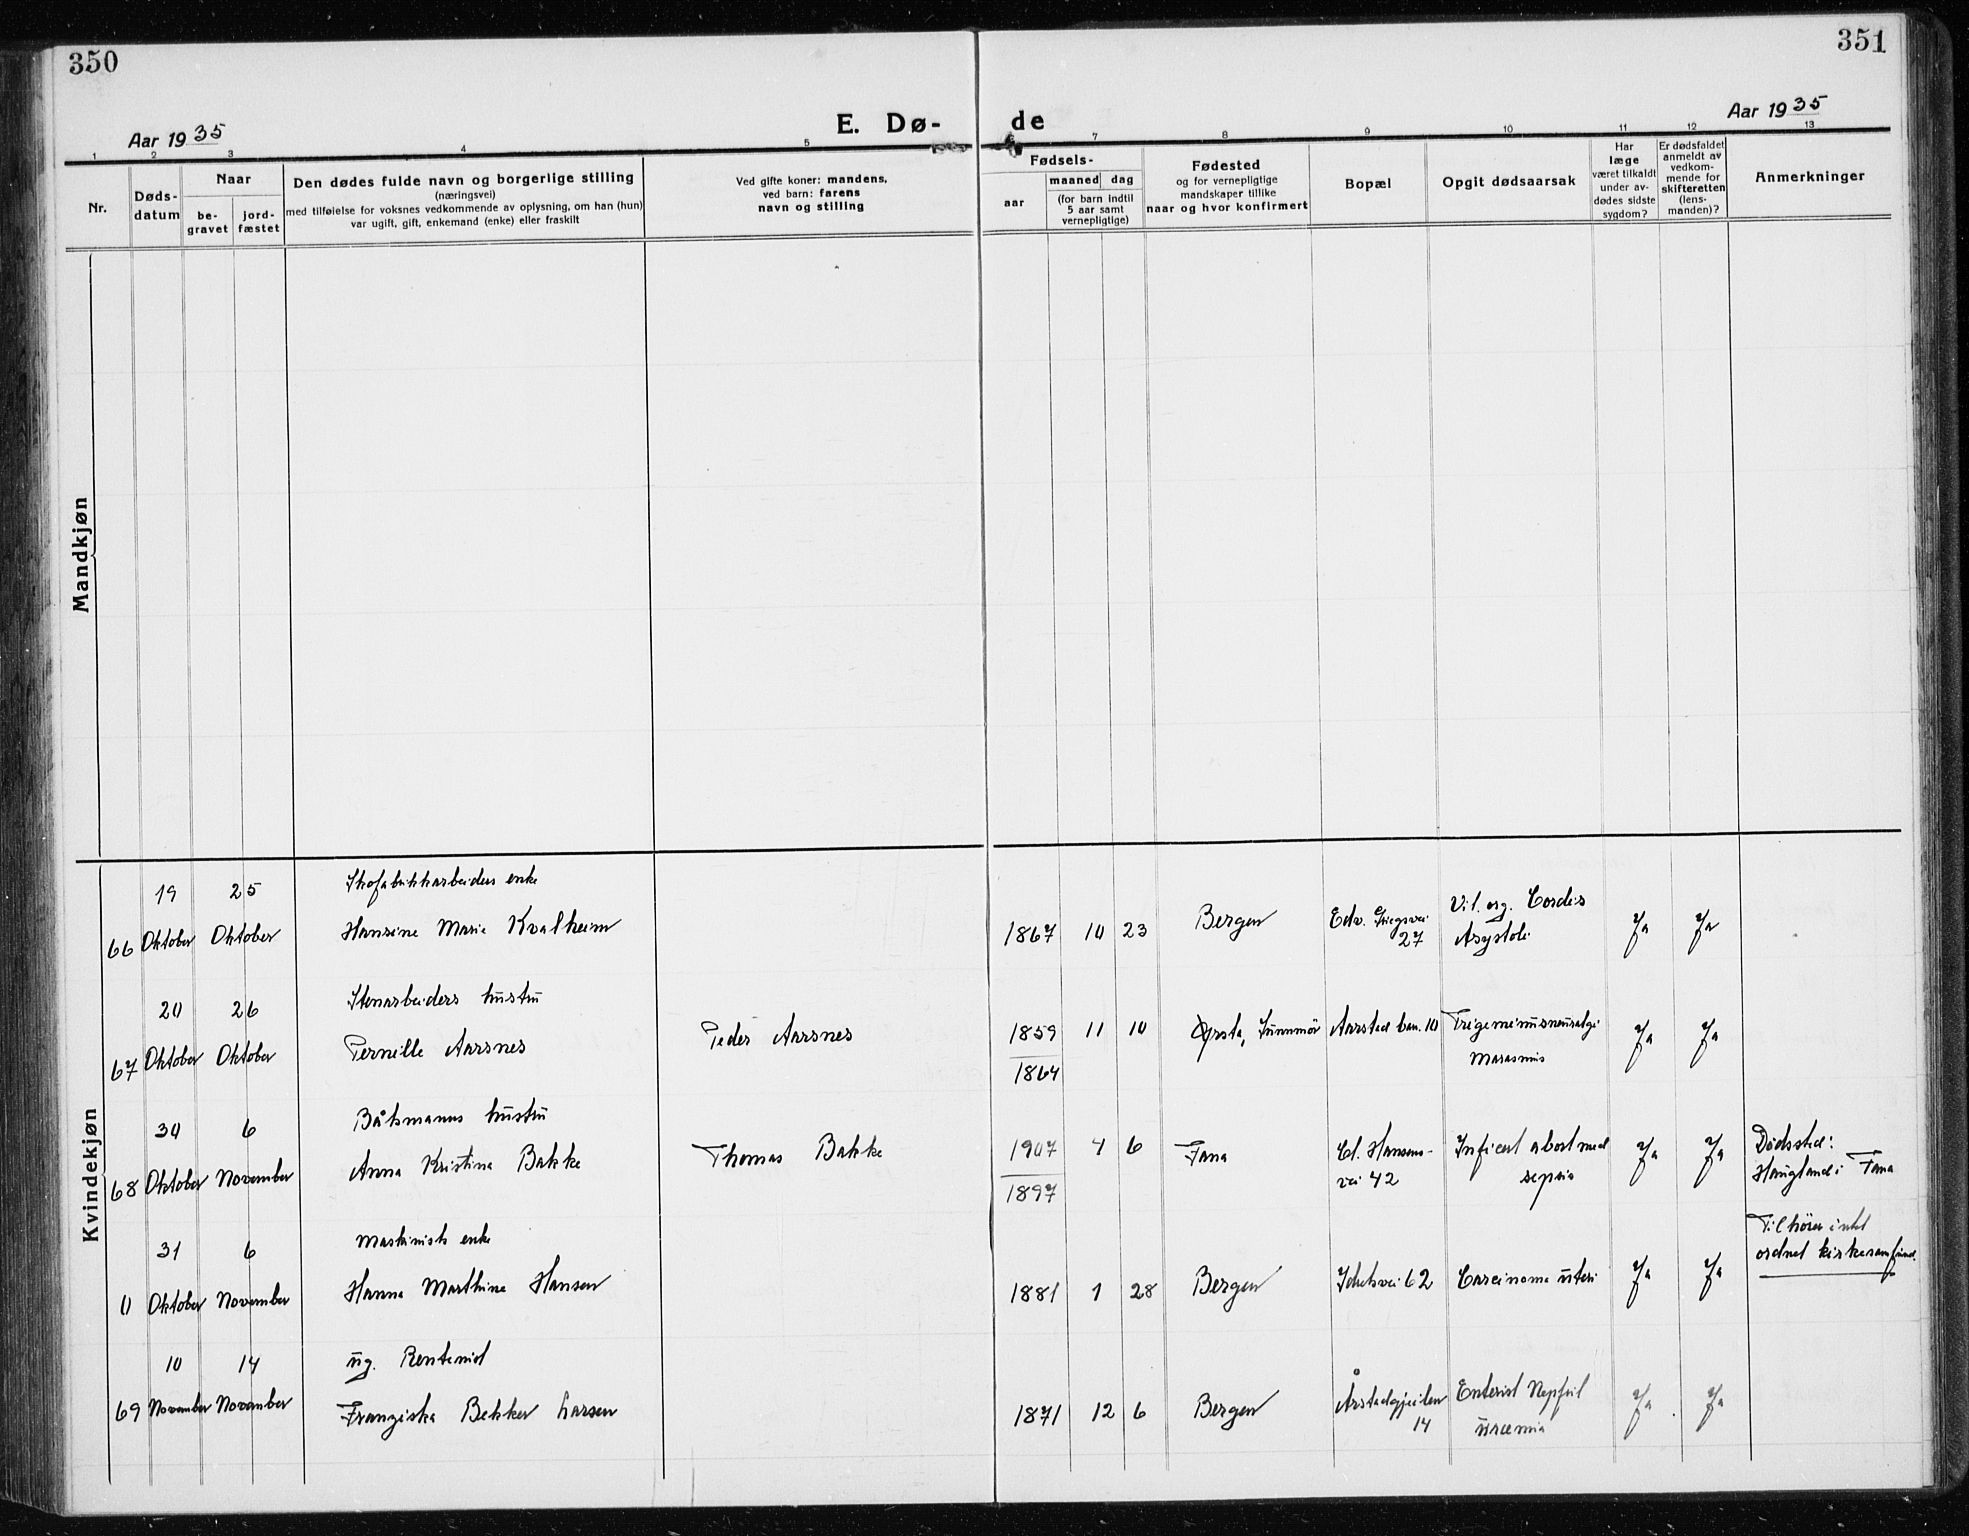 350
351
Aar 1935
E. Dø-
de
Aar 1935
1 2 3 4 5 7 8 9 10 11 12 13
Nr.
Døds-
datum
Naar
be-
gravet
jord-
fæstet
Den dødes fulde navn og borgerlige stilling
(næringsvei)
med tilføielse for voksnes vedkommende av oplysning, om han (hun)
var ugift, gift, enkemand (enke) eller fraskilt
Ved gifte koner: mandens,
ved barn: farens
navn og stilling
Fødsels-
aar
maaned dag
(for barn indtil
5 aar samt
vernepligtige)
Fødested
og for vernepligtige
mandskaper tillike
naar og hvor konfirmert
Bopæl
Opgit dødsaarsak
Har
læge
været tilkaldt
under av-
dødes sidste
sygdom?
Er dødsfaldet
anmeldt av
vedkom-
mende for
skifteretten
(lens-
manden)?
Anmerkninger
Mandkjøn
Kvindekjøn
19 25 Skofabrikkarbeiders enke
66 Oktober Oktober Hansine Marie Kvalheim
1867 10 23 Bergen
Edv. Griegsvei
27
Vit. org. Cordis
Asystoli
Ja Ja
20 26 Stenarbeiders hustru
67 Oktober Oktober Pernille Aarsnes
Peder Aarsnes
1859 11 10 Ørsta, Sunnmör Aarstad ban. 10 Trigeminusneuralgi
1864
Marasmus
Ja Ja
30 6 Båtsmanns hustru
68 Oktober November Anna Kristina Bakke
Thomas Bakke
1907 4 6 Fana
1897
Cl. Hansens-
vei 42
Inficert abort med
sepsis
Ja Ja
Dödssted:
Haugland i Fana
31 6 Maskinists enke
0 Oktober November Hanna Marthine Hansen
1881 1 28 Bergen
62 Carcinoma uteri
Ja Ja
Tilhörer intet
ordnet kirkesamfund.
10 14 ug. Rentenist
69 November November Franziska Bekker Larsen
1871 12 6 Bergen
Årstadgjeilen
14
Enterist
uræmia
Ja Ja